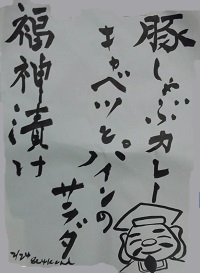 豚しゃぶカレー
キャベツと。パインの
サラダ
福神漬け
2/24